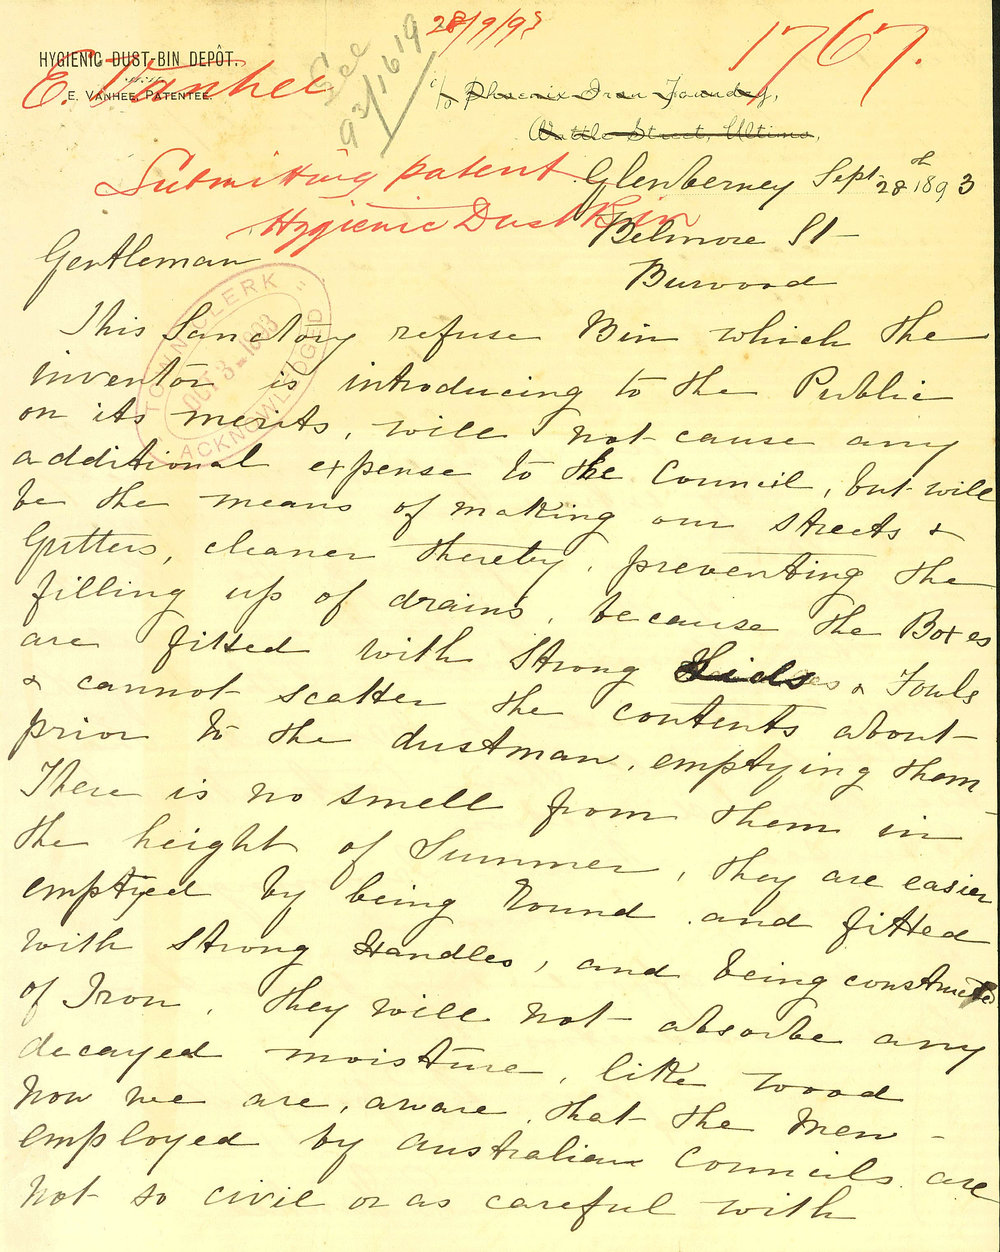 28/9/93
1767.
HYGIENIC DUST-BIN DEPÔT.
E. VANHEE, PATENTEE.
E. Vanhee
See
93/1619
c/o Phoenix Iron Foundry,
Wattle Street, Ultimo,
Submitting patent
Hygienic Dust Bin
Glenberney Sept 28th 1893
Belmore St
Burwood
Gentleman
TOWN CLERK
OCT 3 - 1893
ACKNOWLEDGED
This Sanatory refuse Bin which the
inventor is introducing to the Public
on its merits, will not cause any
additional expense to the Council, but will
be the means of making our streets &
Gutters, cleaner thereby, preventing the
filling up of drains, because the Boxes
are fitted with strong Lids & Fowls
& cannot scatter the contents about
prior to the dustman, emptying them
There is no smell from them in
the height of Summer, they are easier
emptyed by being Round and fitted
with strong Handles, and being constructed
of Iron, they will not absorbe any
decayed moisture, like wood
Now we are, aware, that the men
employed by Australian Councils are
not so civil or as careful with